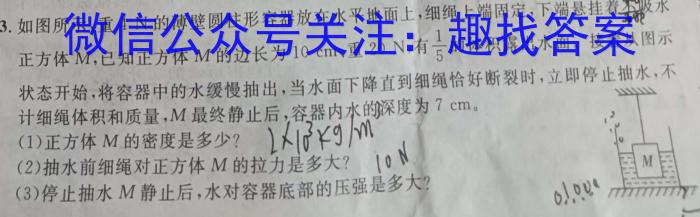 3. 如图所 重 N的薄壁圆柱形容器放在水平地面上,细绳上端固定,下端悬挂着不吸水
微信公众号关注:趣找答案
正方体M,已知正方体M的边长为10 cm,重20 N,有1/5 水面 图示
状态开始,将容器中的水缓慢抽出,当水面下降直到细绳恰好断裂时,立即停止抽水,不
计细绳体积和质量,M最终静止后,容器内水的深度为7 cm。
(1)正方体M的密度是多少? 2×10³kg/m³
(2)抽水前细绳对正方体M的拉力是多大? 10N
(3)停止抽水M静止后,水对容器底部的压强是多大?
M